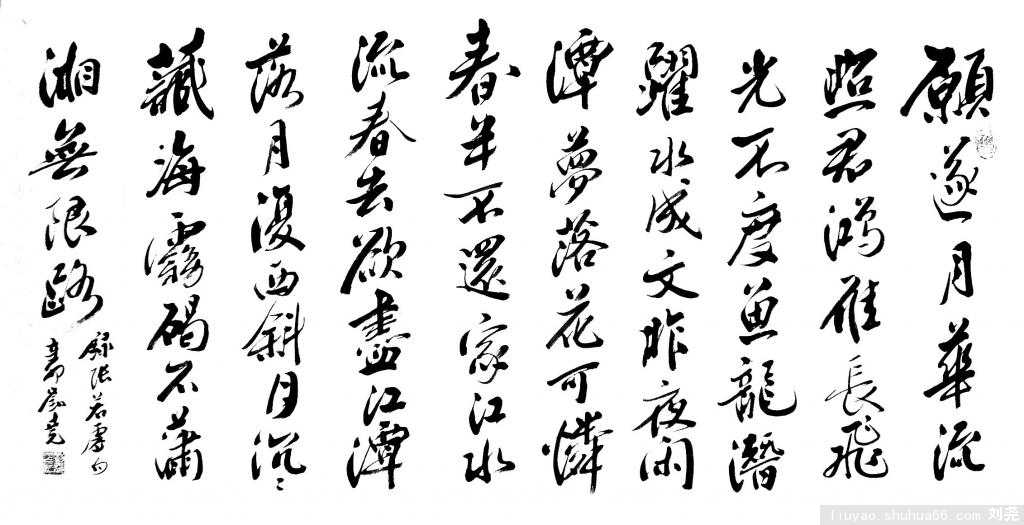 願逐月華流
照君鴻雁長飛
光不度魚龍潛
躍水成文昨夜閑
潭夢落花可憐
春半不還家江水
流春去欲盡江潭
落月復西斜月沉々
藏海霧碣石瀟
湘無限路
錄張若虛句
辛卯
liuyao.shuhua66.com 刘尧